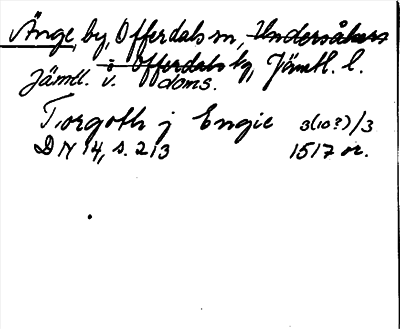 Änge, by, Offerdals sn, Undersåkers
i Offerdals tg, Jämtl. l.
Jämtl. v. doms.
Torgoth j Engie 3(10?)/3
DN 14, s. 213 1517 or.